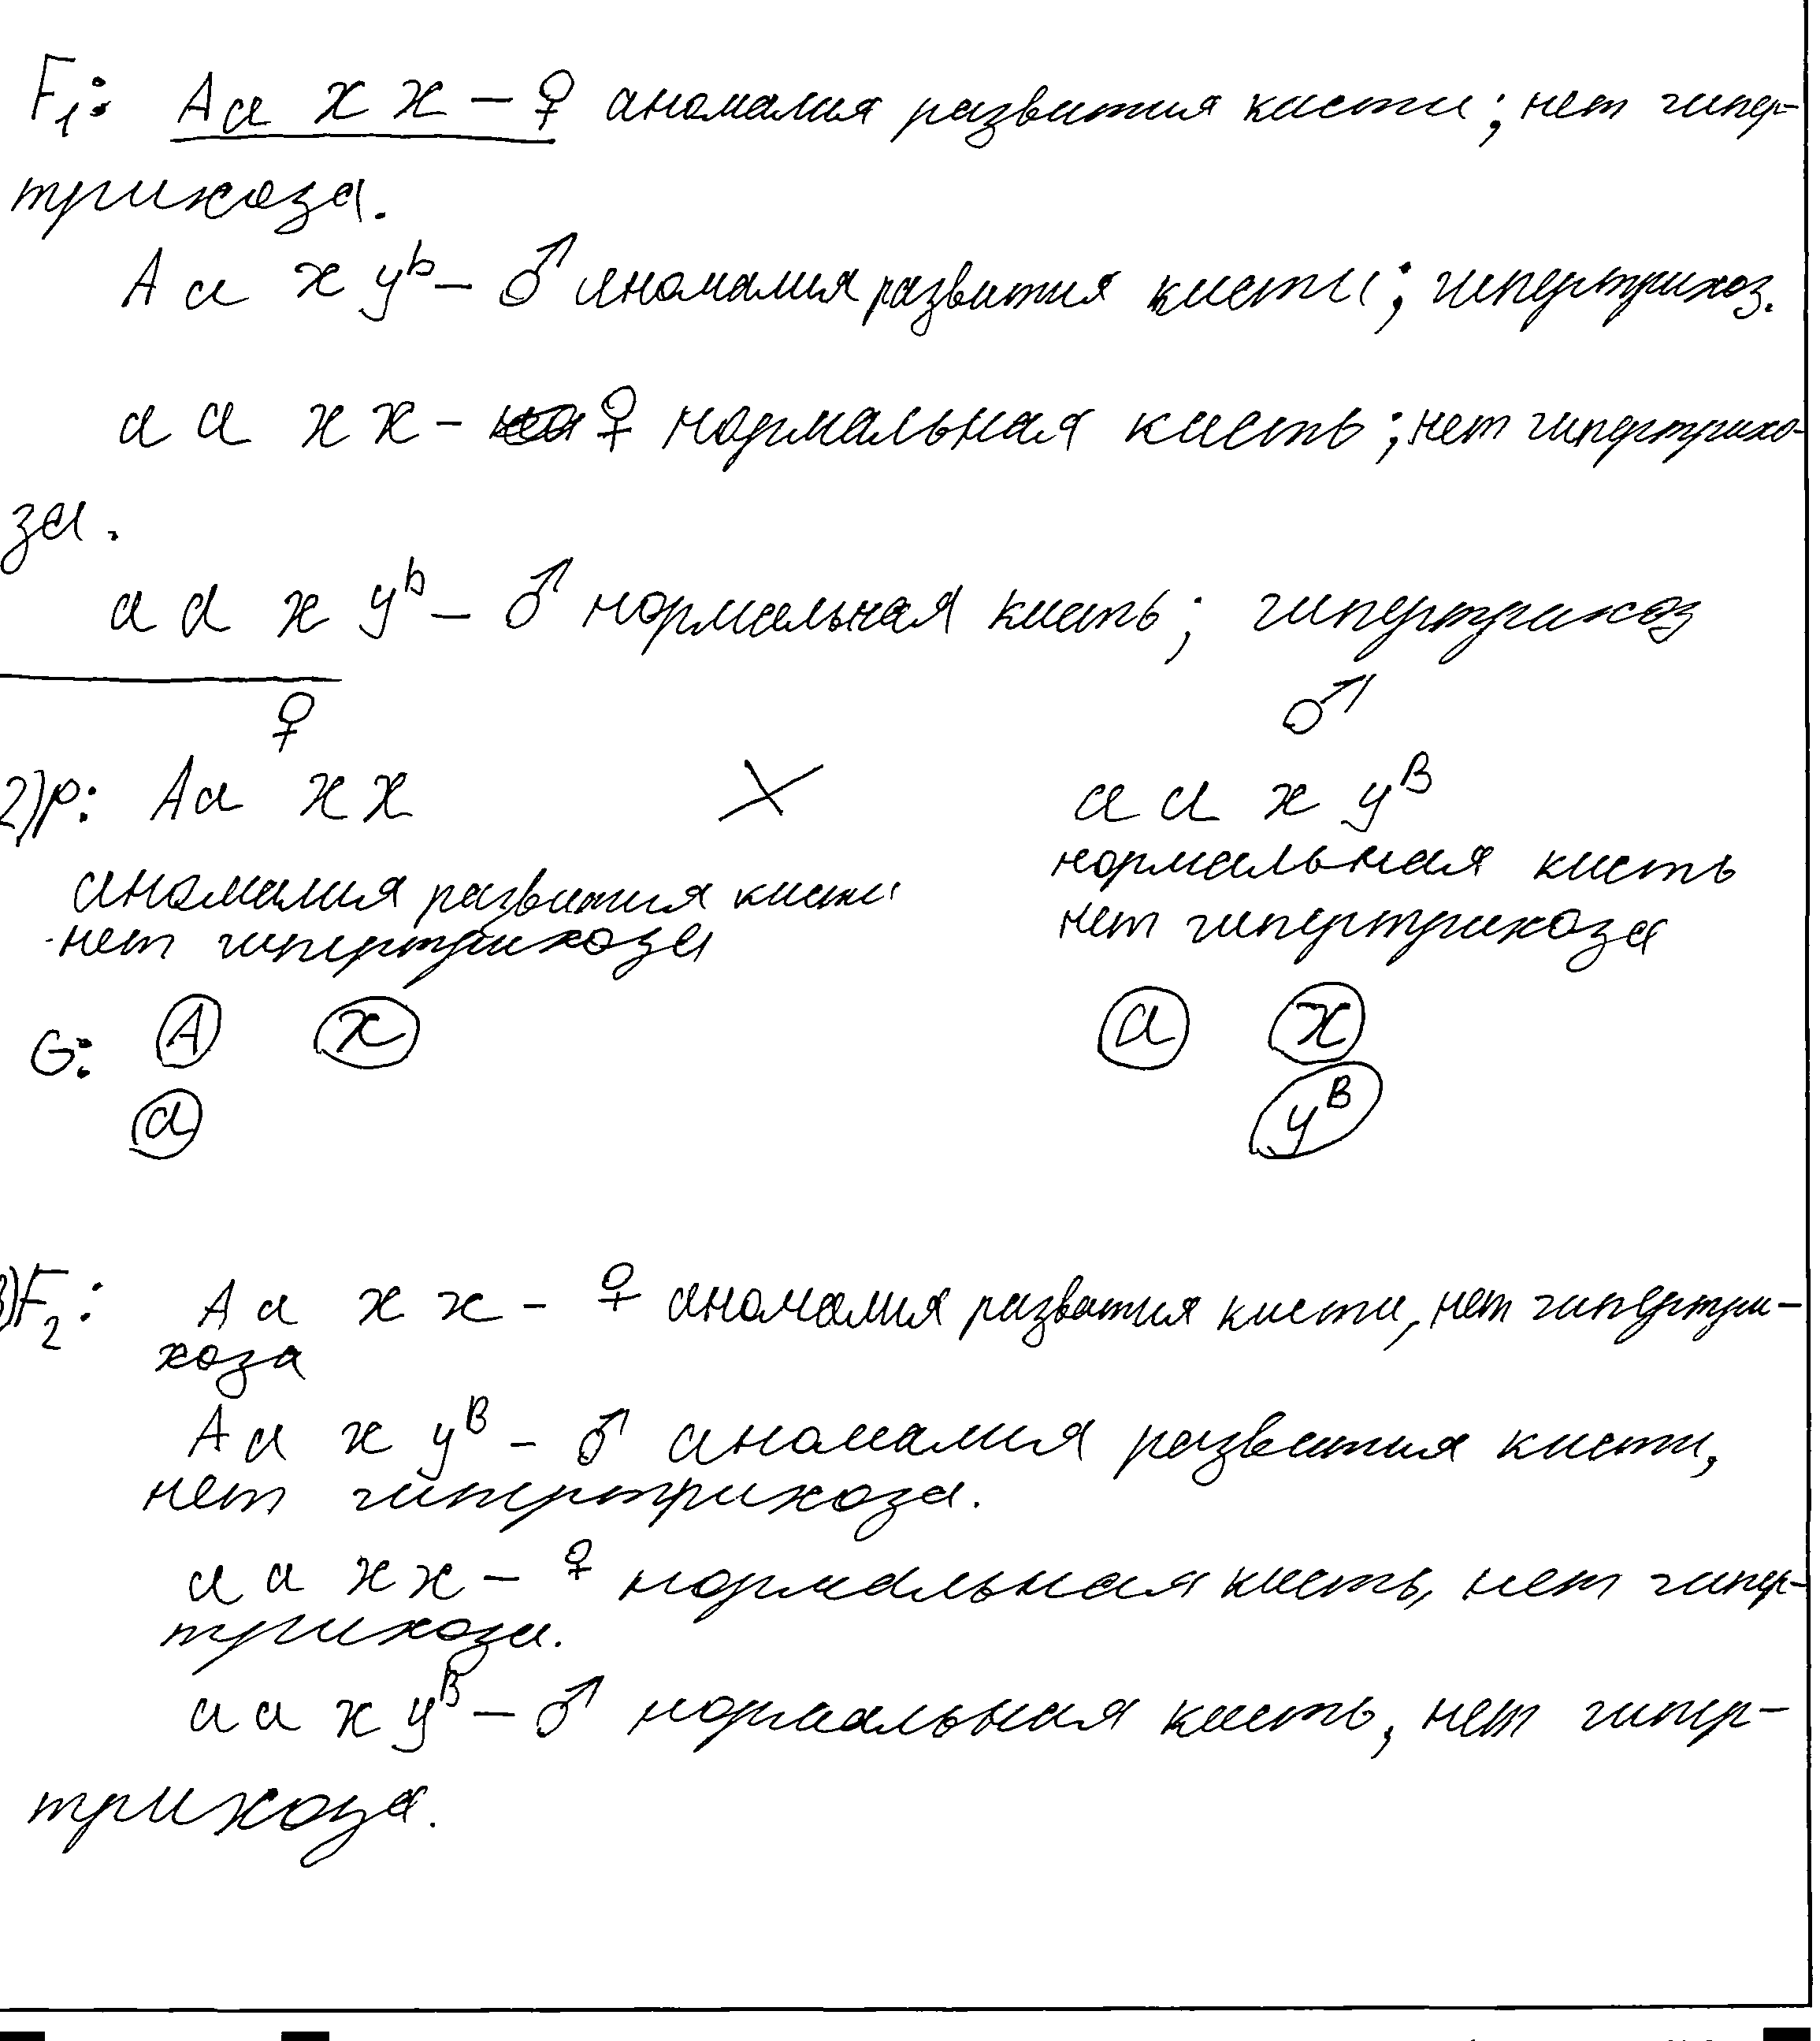 F₁: Aa xx – ♀ аномалия развития кисти; нет гипер-
трихоза.
Aa xyᵇ – ♂ аномалия развития кисти; гипертрихоз.
aa xx – ♀ нормальная кисть; нет гипертрихо-
за.
aa xyᵇ – ♂ нормальная кисть; гипертрихоз
♀ ♂
2) P: Aa xx × aa xyᴮ
аномалия развития кисти нормальная кисть
нет гипертрихоза нет гипертрихоза
G: A x a x
a yᴮ
3) F₂: Aa xx – ♀ аномалия развития кисти, нет гипертри-
хоза
Aa xyᴮ – ♂ аномалия развития кисти,
нет гипертрихоза.
aa xx – ♀ нормальная кисть, нет гипер-
трихоза.
aa xyᴮ – ♂ нормальная кисть, нет гипер-
трихоза.